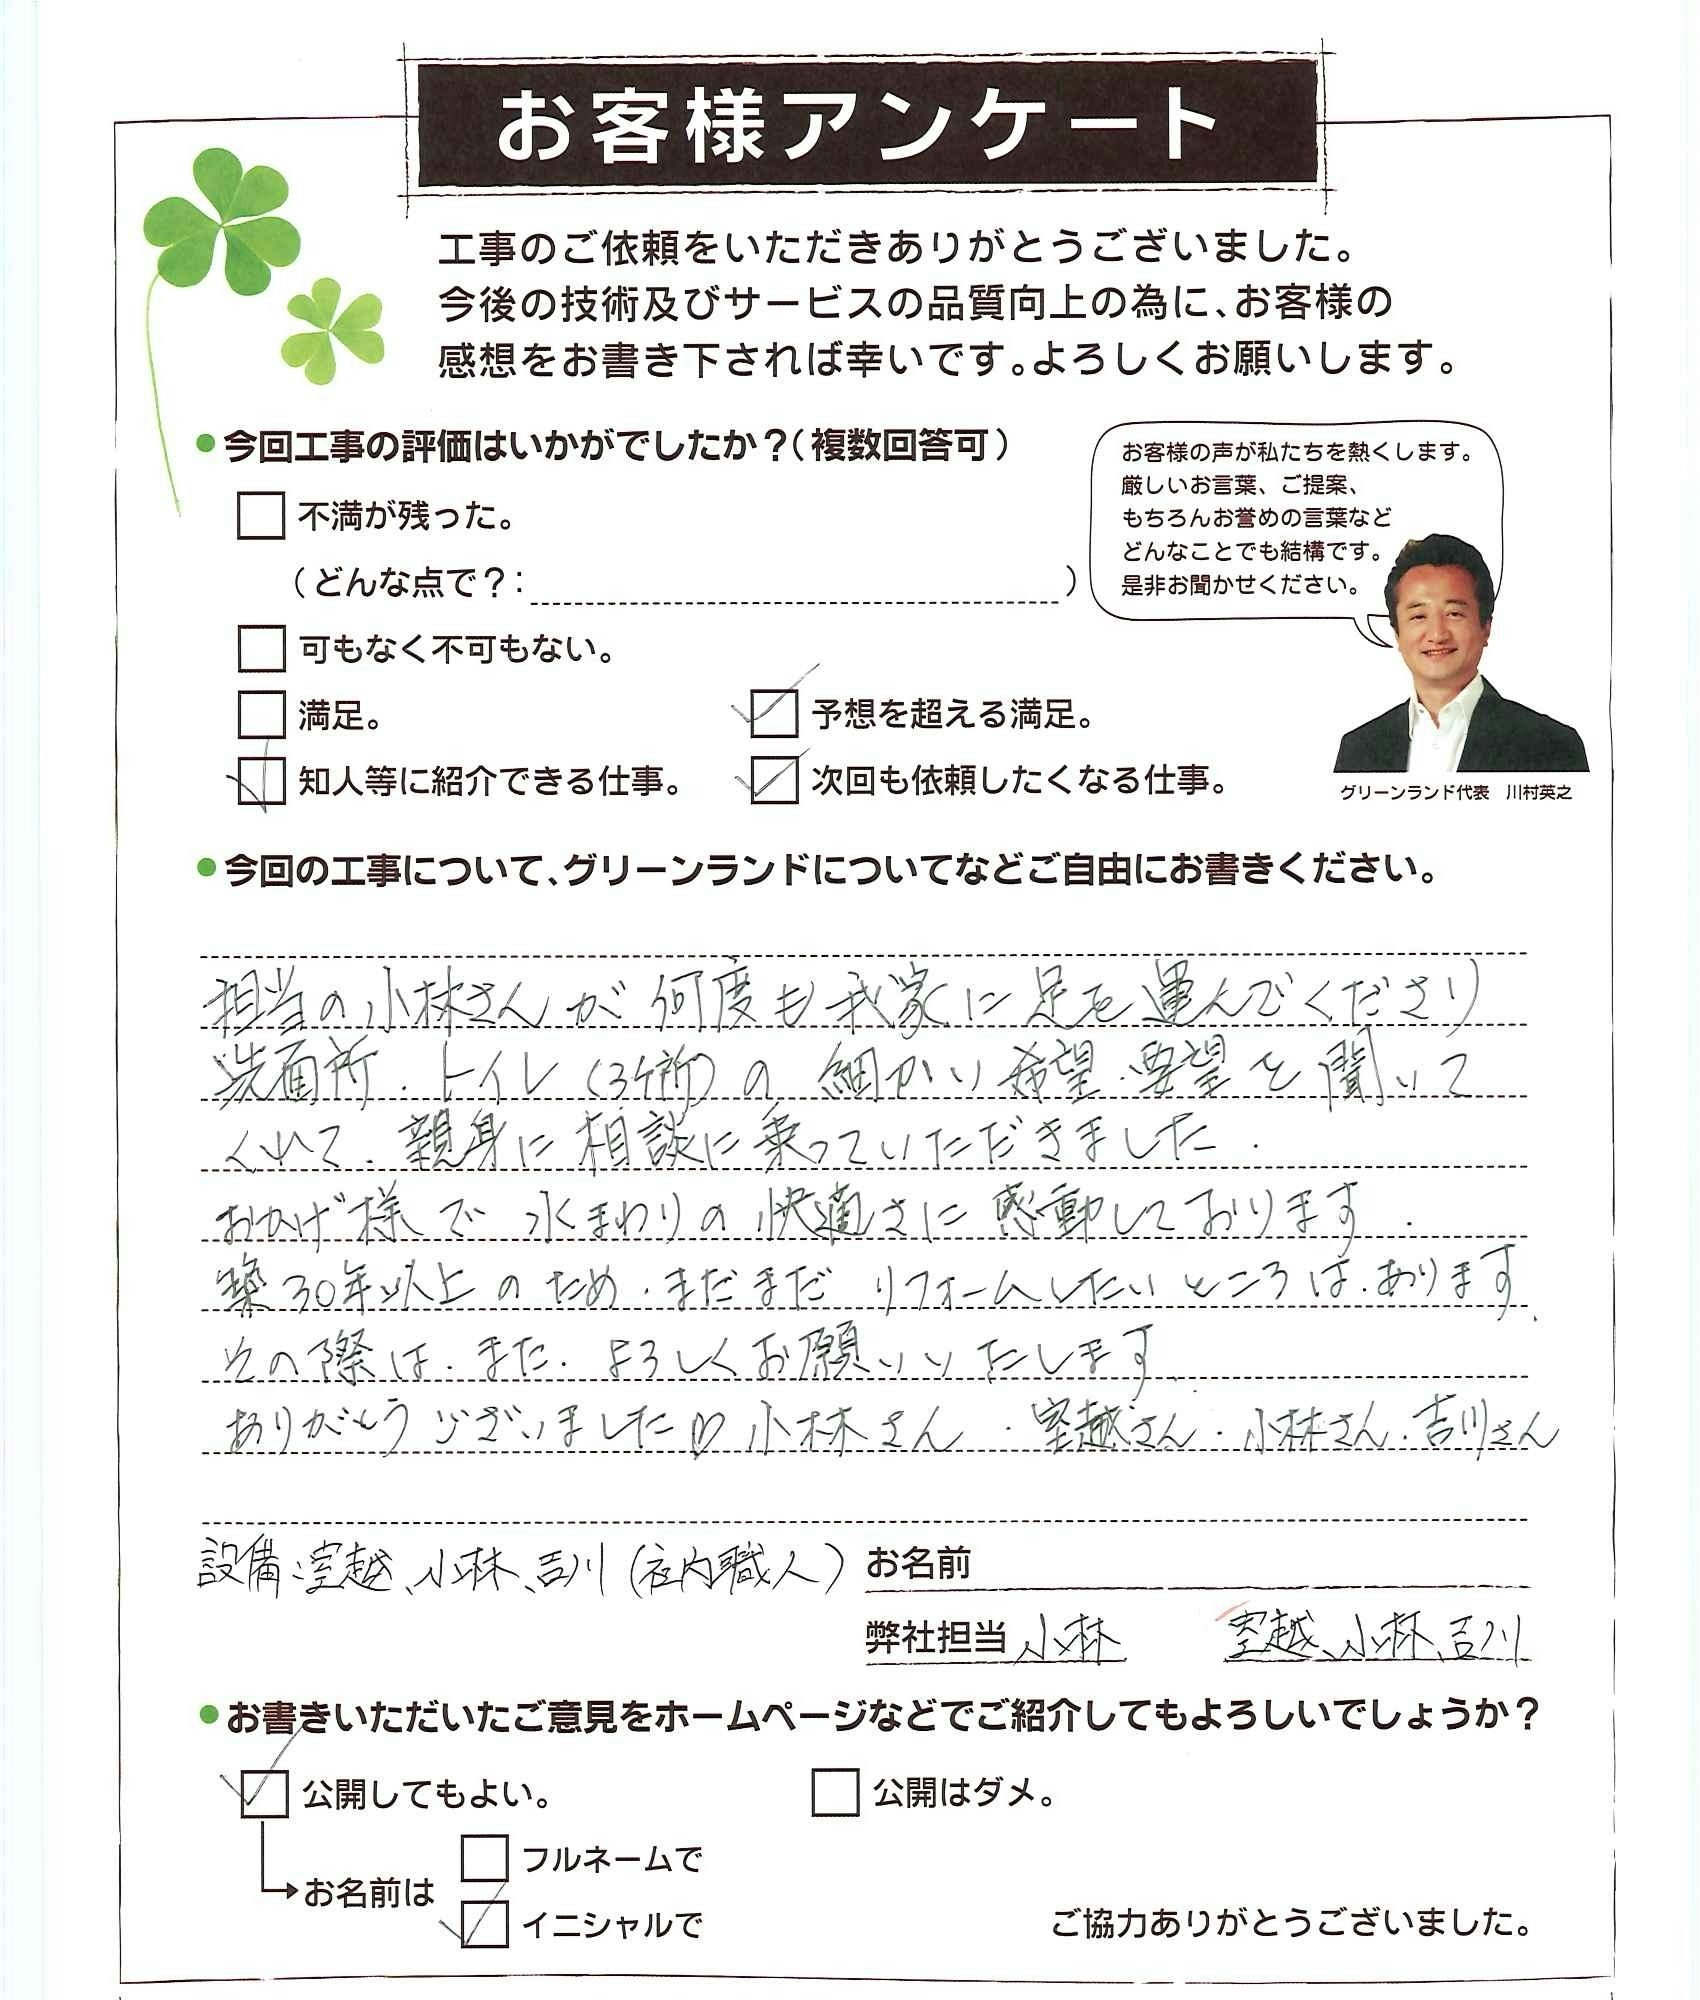 お客様アンケート
工事のご依頼をいただきありがとうございました。
今後の技術及びサービスの品質向上の為に、お客様の
感想をお書き下されば幸いです。よろしくお願いします。
●今回工事の評価はいかがでしたか？（複数回答可）
お客様の声が私たちを熱くします。
厳しいお言葉、ご提案、
もちろんお誉めの言葉など
どんなことでも結構です。
是非お聞かせください。
グリーンランド代表　川村英之
□不満が残った。
（どんな点で？：　　　）
□可もなく不可もない。
□満足。　☑予想を超える満足。
☑知人等に紹介できる仕事。　☑次回も依頼したくなる仕事。
●今回の工事について、グリーンランドについてなどご自由にお書きください。
担当の小林さんが何度も我家に足を運んでくださり
洗面所．トイレ（3ケ所）の細かい希望．要望を聞いて
くれて．親身に相談に乗っていただきました．
おかげ様で水まわりの快適さに感動しております．
築30年以上のため．まだまだリフォームしたいところは．あります．
その際は．また．よろしくお願いいたします．
ありがとうございました♡小林さん．室越さん．小林さん．吉川さん
設備：室越、小林、吉川（社内職人）　お名前
弊社担当　小林　室越、小林、吉川
●お書きいただいたご意見をホームページなどでご紹介してもよろしいでしょうか？
☑公開してもよい。　□公開はダメ。
→お名前は　□フルネームで
☑イニシャルで
ご協力ありがとうございました。